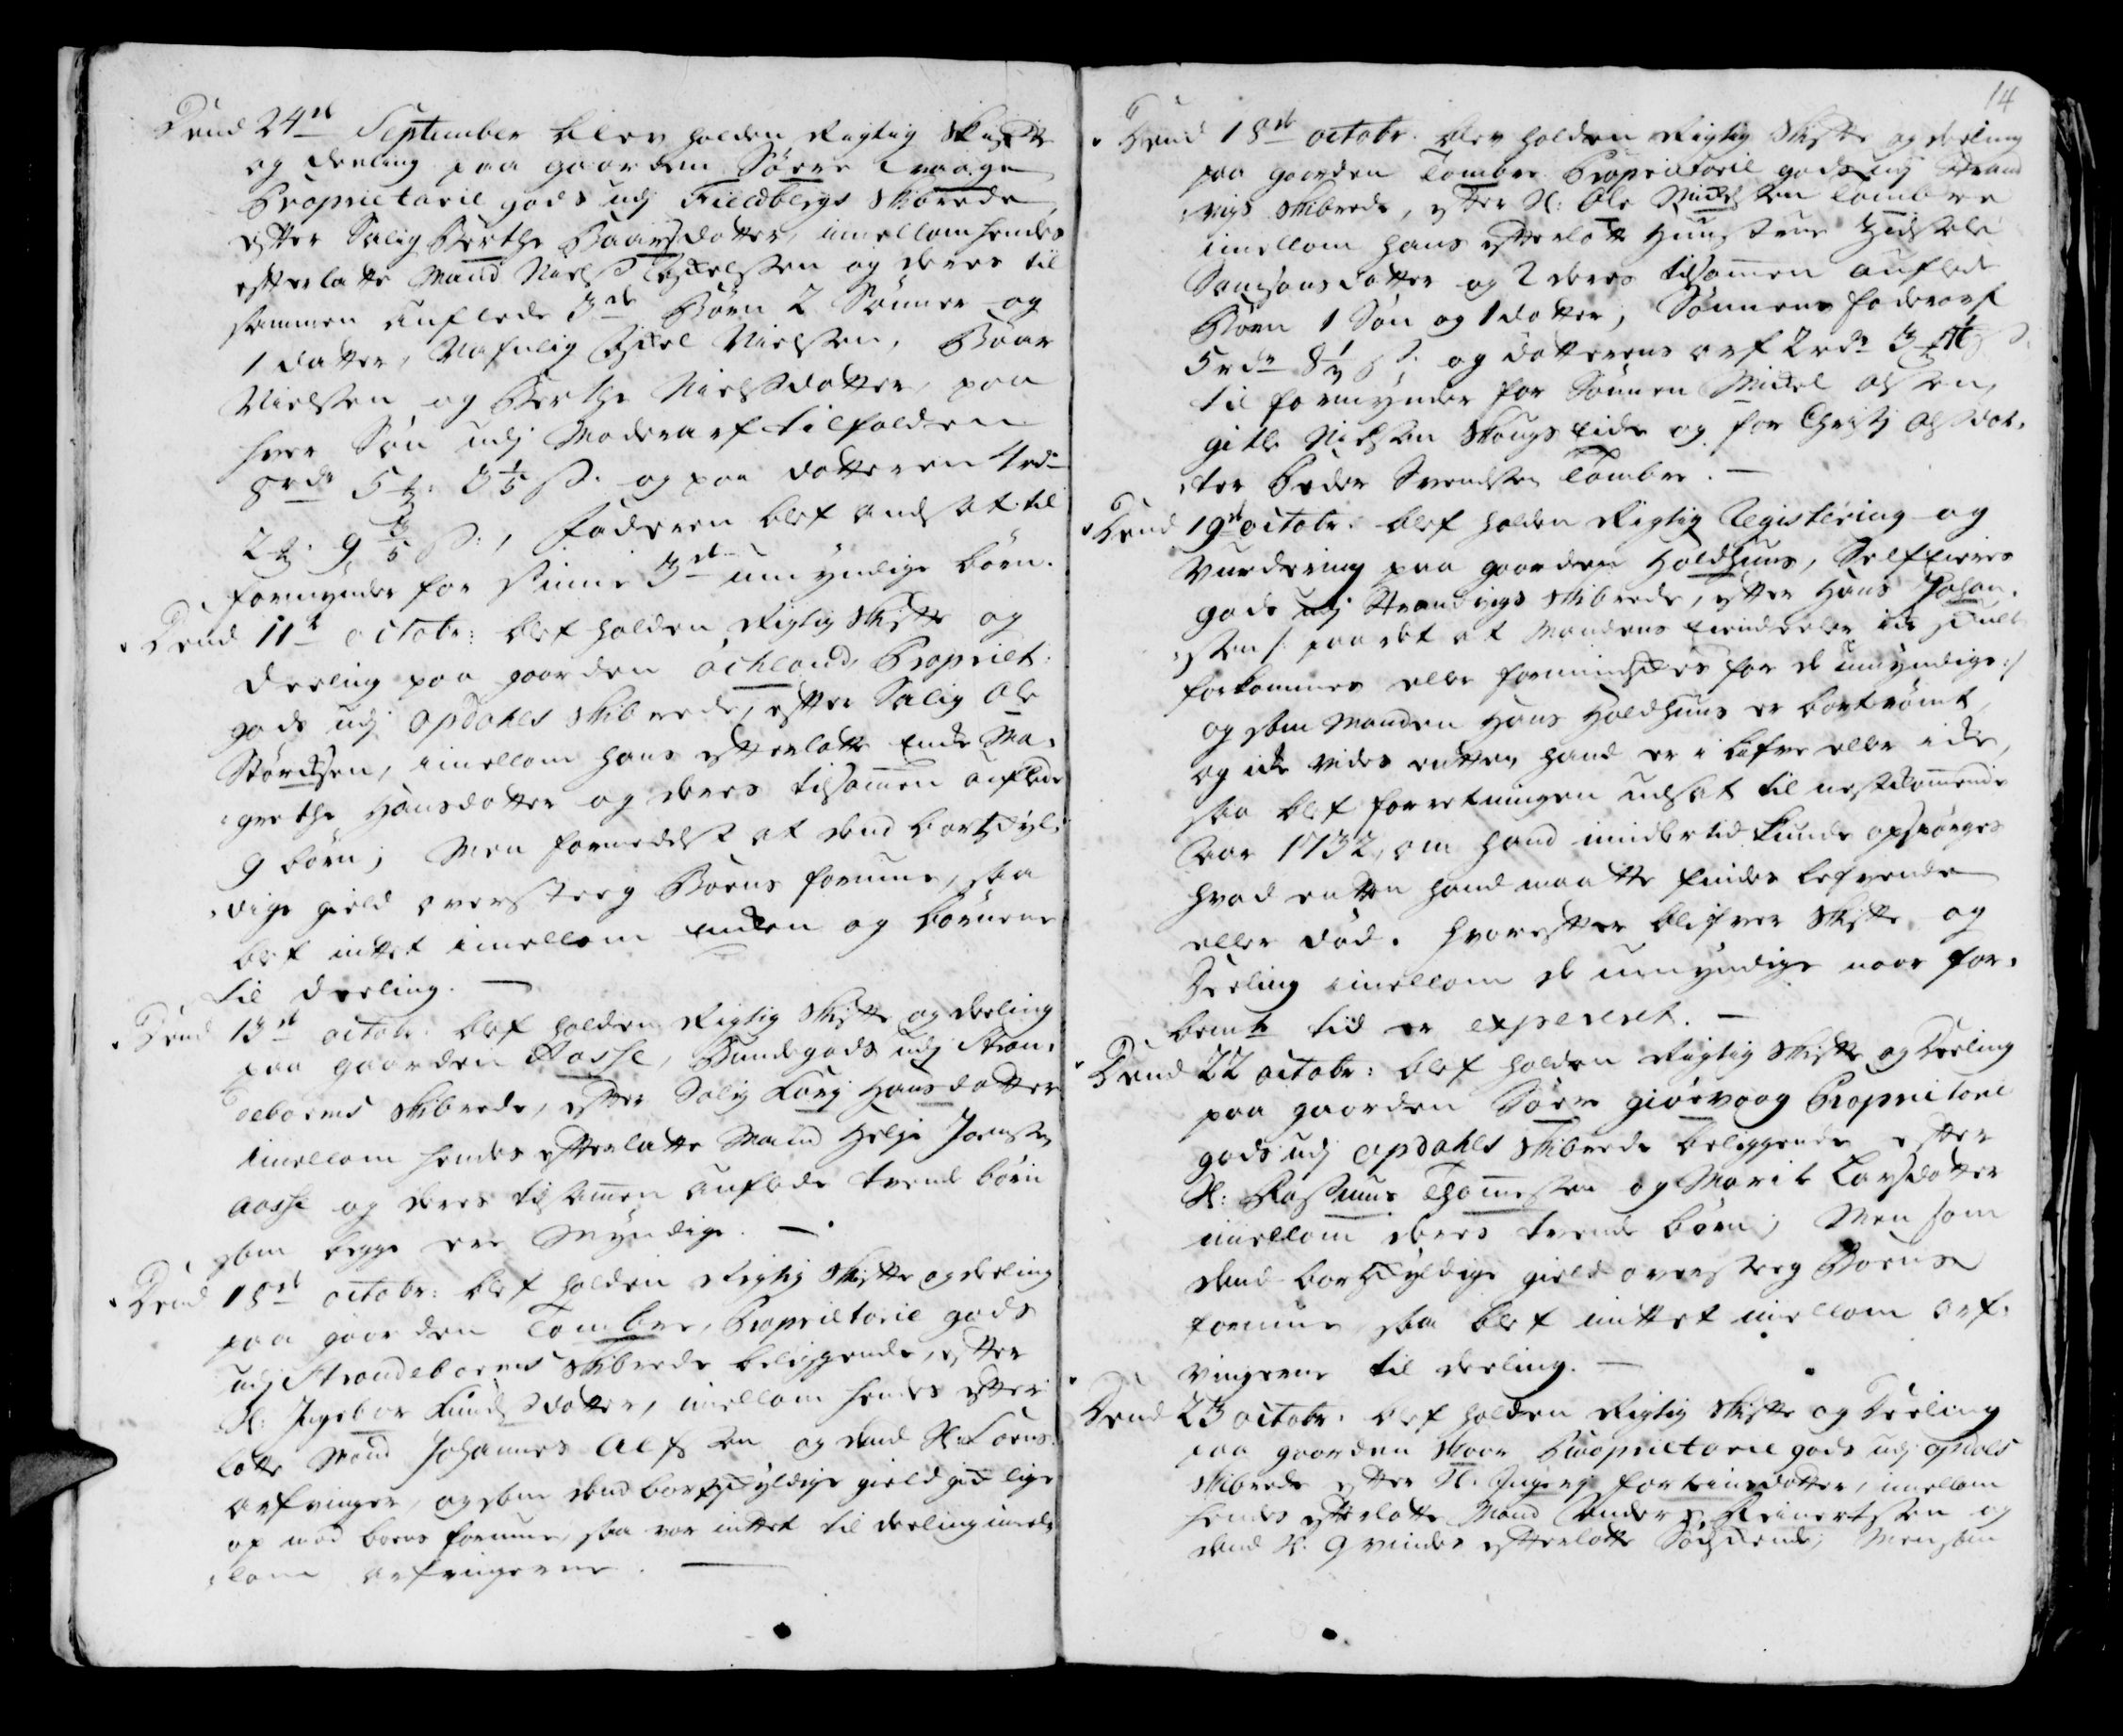 Dend 24de September blev holden Rigtig Skifte
og deeling paa gaarden Søere Waage
Proprietarie gods udj Fieldbergs Skibrede,
efter Salig Berthe Baarsdotter, imellom hendes
efterlatte Mand Niels Ischelssen og deres til
sammen auflede 3de Børn 2 Sønner og
1 datter, Nafnlig Ischel Nielssen, Baar
Nielssen og Berthe Nielsdatter, paa
hver Søn udj Moderarf tilfalden
8 rdr 5 ß. og paa datteren 4 rdr
2 9 ß., Faderen blef andsat til
formynder for sinne 3de umyndige børn.
Dend 11te octobr: blef holden Rigtig Skifte og
deeling paa gaarden Ochland, Propriet:
gods udj Opdahls Skibrede, efter Salig Ole
Størchsen, imellom hans efterlatte Encke Ma-
grethe Hansdatter og deres tilsamen auflede
9 børn; Men formedelst at dend bortskyl-
dige gield oversteeg Boens formue, saa
blef intet imellom Encken og børnene
til deeling. —
Dend 13de octobr: blef holden Rigtig Skifte og deeling
paa gaarden Aasse, Bundegods udj Stran-
deboerms Skibrede, efter Salig Karj Hansdatter
imellom hendes efterlatte Mand Helje Joenssen
Aasse og deres tilsamen auflede trende børn
som begge ere Myndige. —
Dend 18de octobr: blef holden Rigtig Skifte og deeling
paa gaarden Tombre, Proprietarie gods
udj Strandeboerms Skibrede beliggende, efter
Sl: Ingebor Knudsdatter, imellom hendes efter-
latte Mand Johannes Alfssen og dend Sl: Koens
arfvinger, og som dend bortskyldige gield gich lige
op mod boens formue, saa var intet til deeling imel-
lom arfvingerne. —
14
Dend 18de octobr. blev holden Rigtig Skifte og deeling
paa gaarden Tombre Proprietarie gods udj Strand
vigs Skibrede, efter Sl: Ole Michelssen Tombre
imellom hans efterlatte Hustrue Zidsele
Samsonsdatter og 2 deres tilsamen auflede
Børn 1 Søn og 1 datter; Sønnens faderarf
5 rdr ß; og datterens arf 2 rdr 3
til formynder for Sønnen Michel Olssen,
Gitle Nielssen Skougseide og for Christj Olsdat-
ter Peder Svendssen Tombre. —
Dend 19de octobr: blef holden Rigtig Registering og
Vurdering paa gaarden Holdhuus, Selfeiers
gods udj Strandvigs Skibrede, efter Hans Johan-
ssen /: paa det at Mandens Eiendeeler icke skulle
forkommes eller formindskes for de umyndige :/
og som Manden Hans Holdhuus er bortrømt,
og icke vides enten hand er i lifve eller icke,
saa blef forretningen udsat til nestkommende
Aar 1732, om hand imidlertid kunde opspørges
hvad enten hand maatte findes lefvende
eller død. hvorefter blifver Skifte og
Deeling imellom de umyndige naar for-
bemte tid er expereret. —
Dend 22 octobr: blef holden Rigtig Skifte og Deeling
paa gaarden Søere Giøevaag Proprietarie
gods udj Opdahls Skibrede beliggende efter
Sl: Rasmus Thomessen og Marite Larsdatter
imellom deres trende børn; Men som
dend bortskyldige gield oversteeg Boens
formue saa blef intet imellom arf-
vingerne til deeling. —
Dend 23 octobr. blef holden Rigtig Skifte og Deeling
paa gaarden Skaar Proprietarie gods udj Opdals
Skibrede efter Sl: Ingerj Torkiinsdatter, imellom
hendes efterlatte Mand Anders Reinertssen og
dend Sl: Qvindes efterlatte Sødskende; Men som